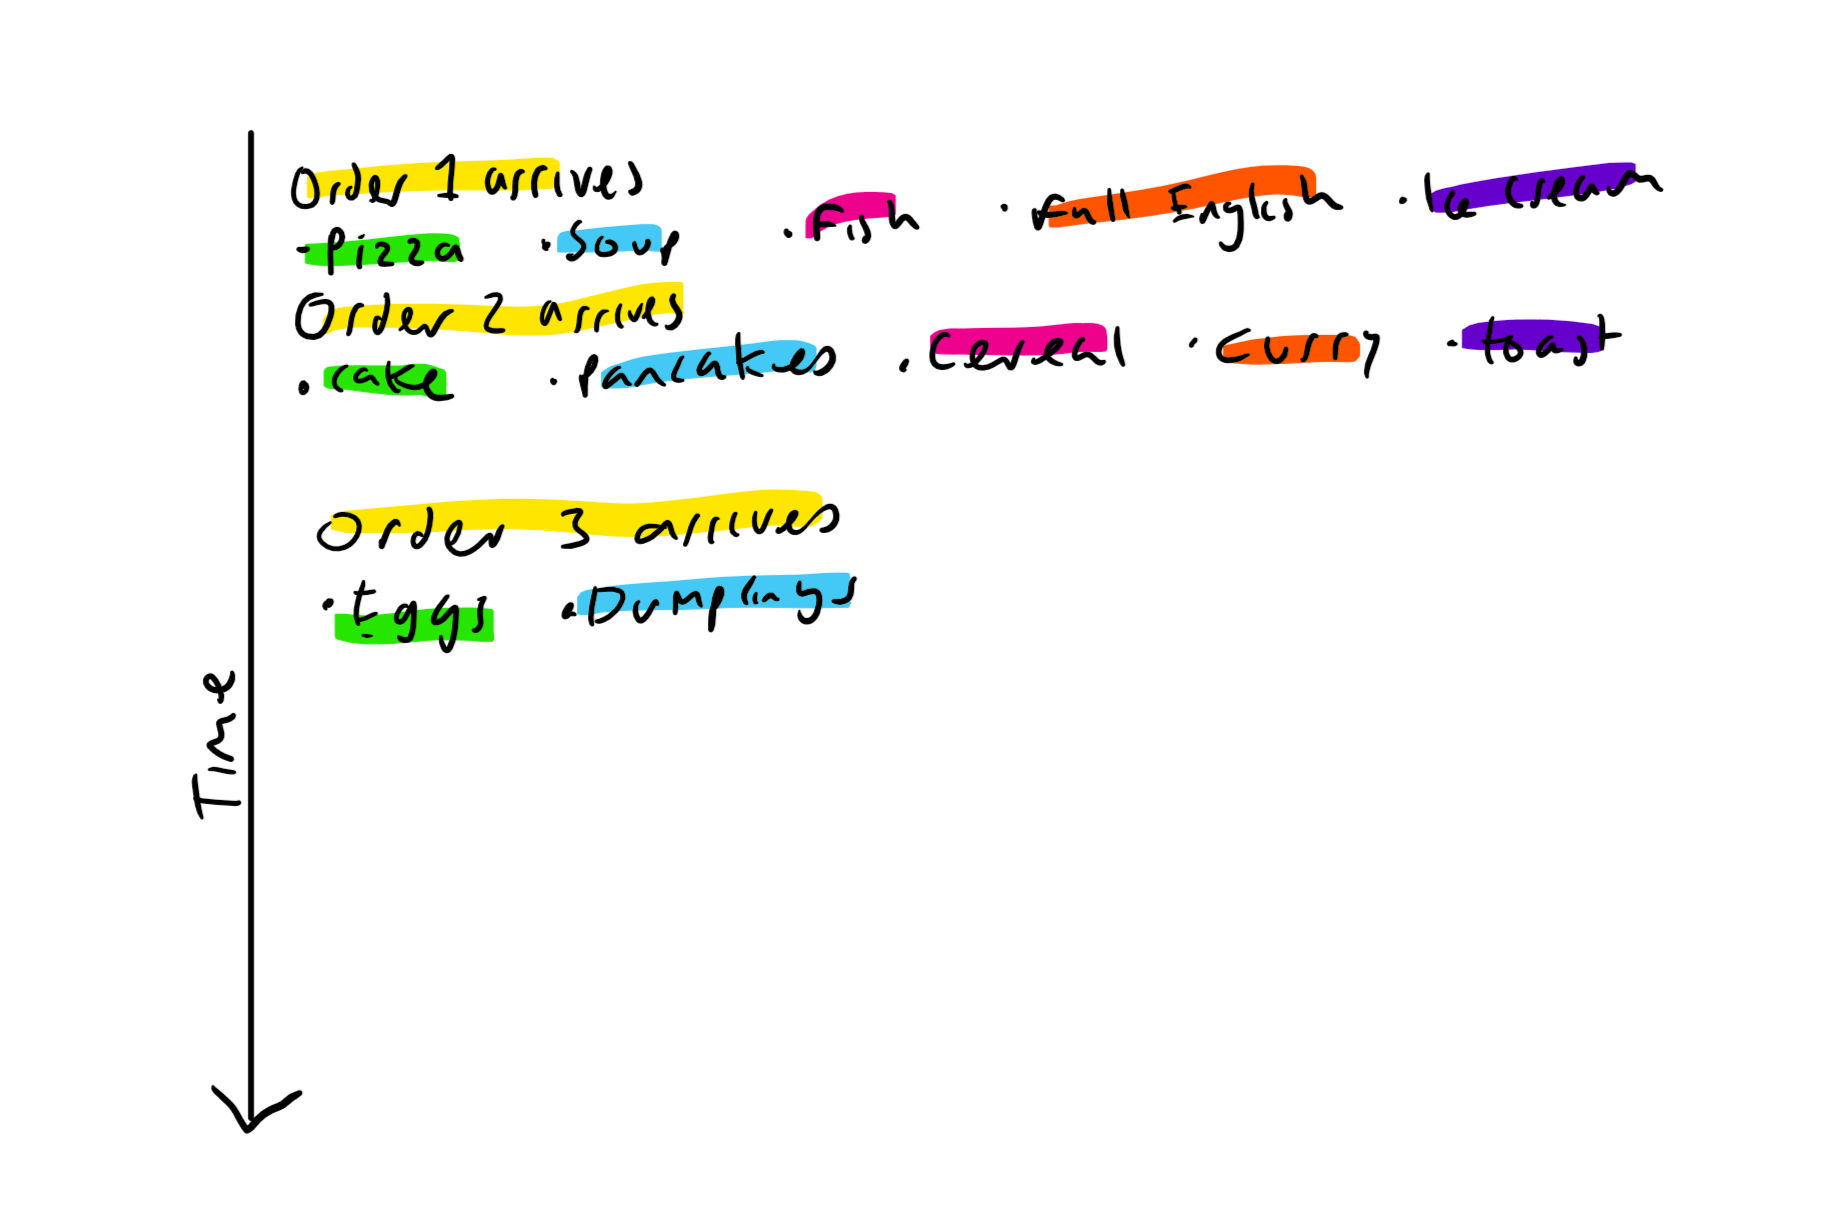 Order 1 arrives
- Pizza · Soup · Fish · Full English · Ice cream
Order 2 arrives
· Cake · Pancakes · Cereal · Curry · toast
Order 3 arrives
· Eggs · Dumplings
Time